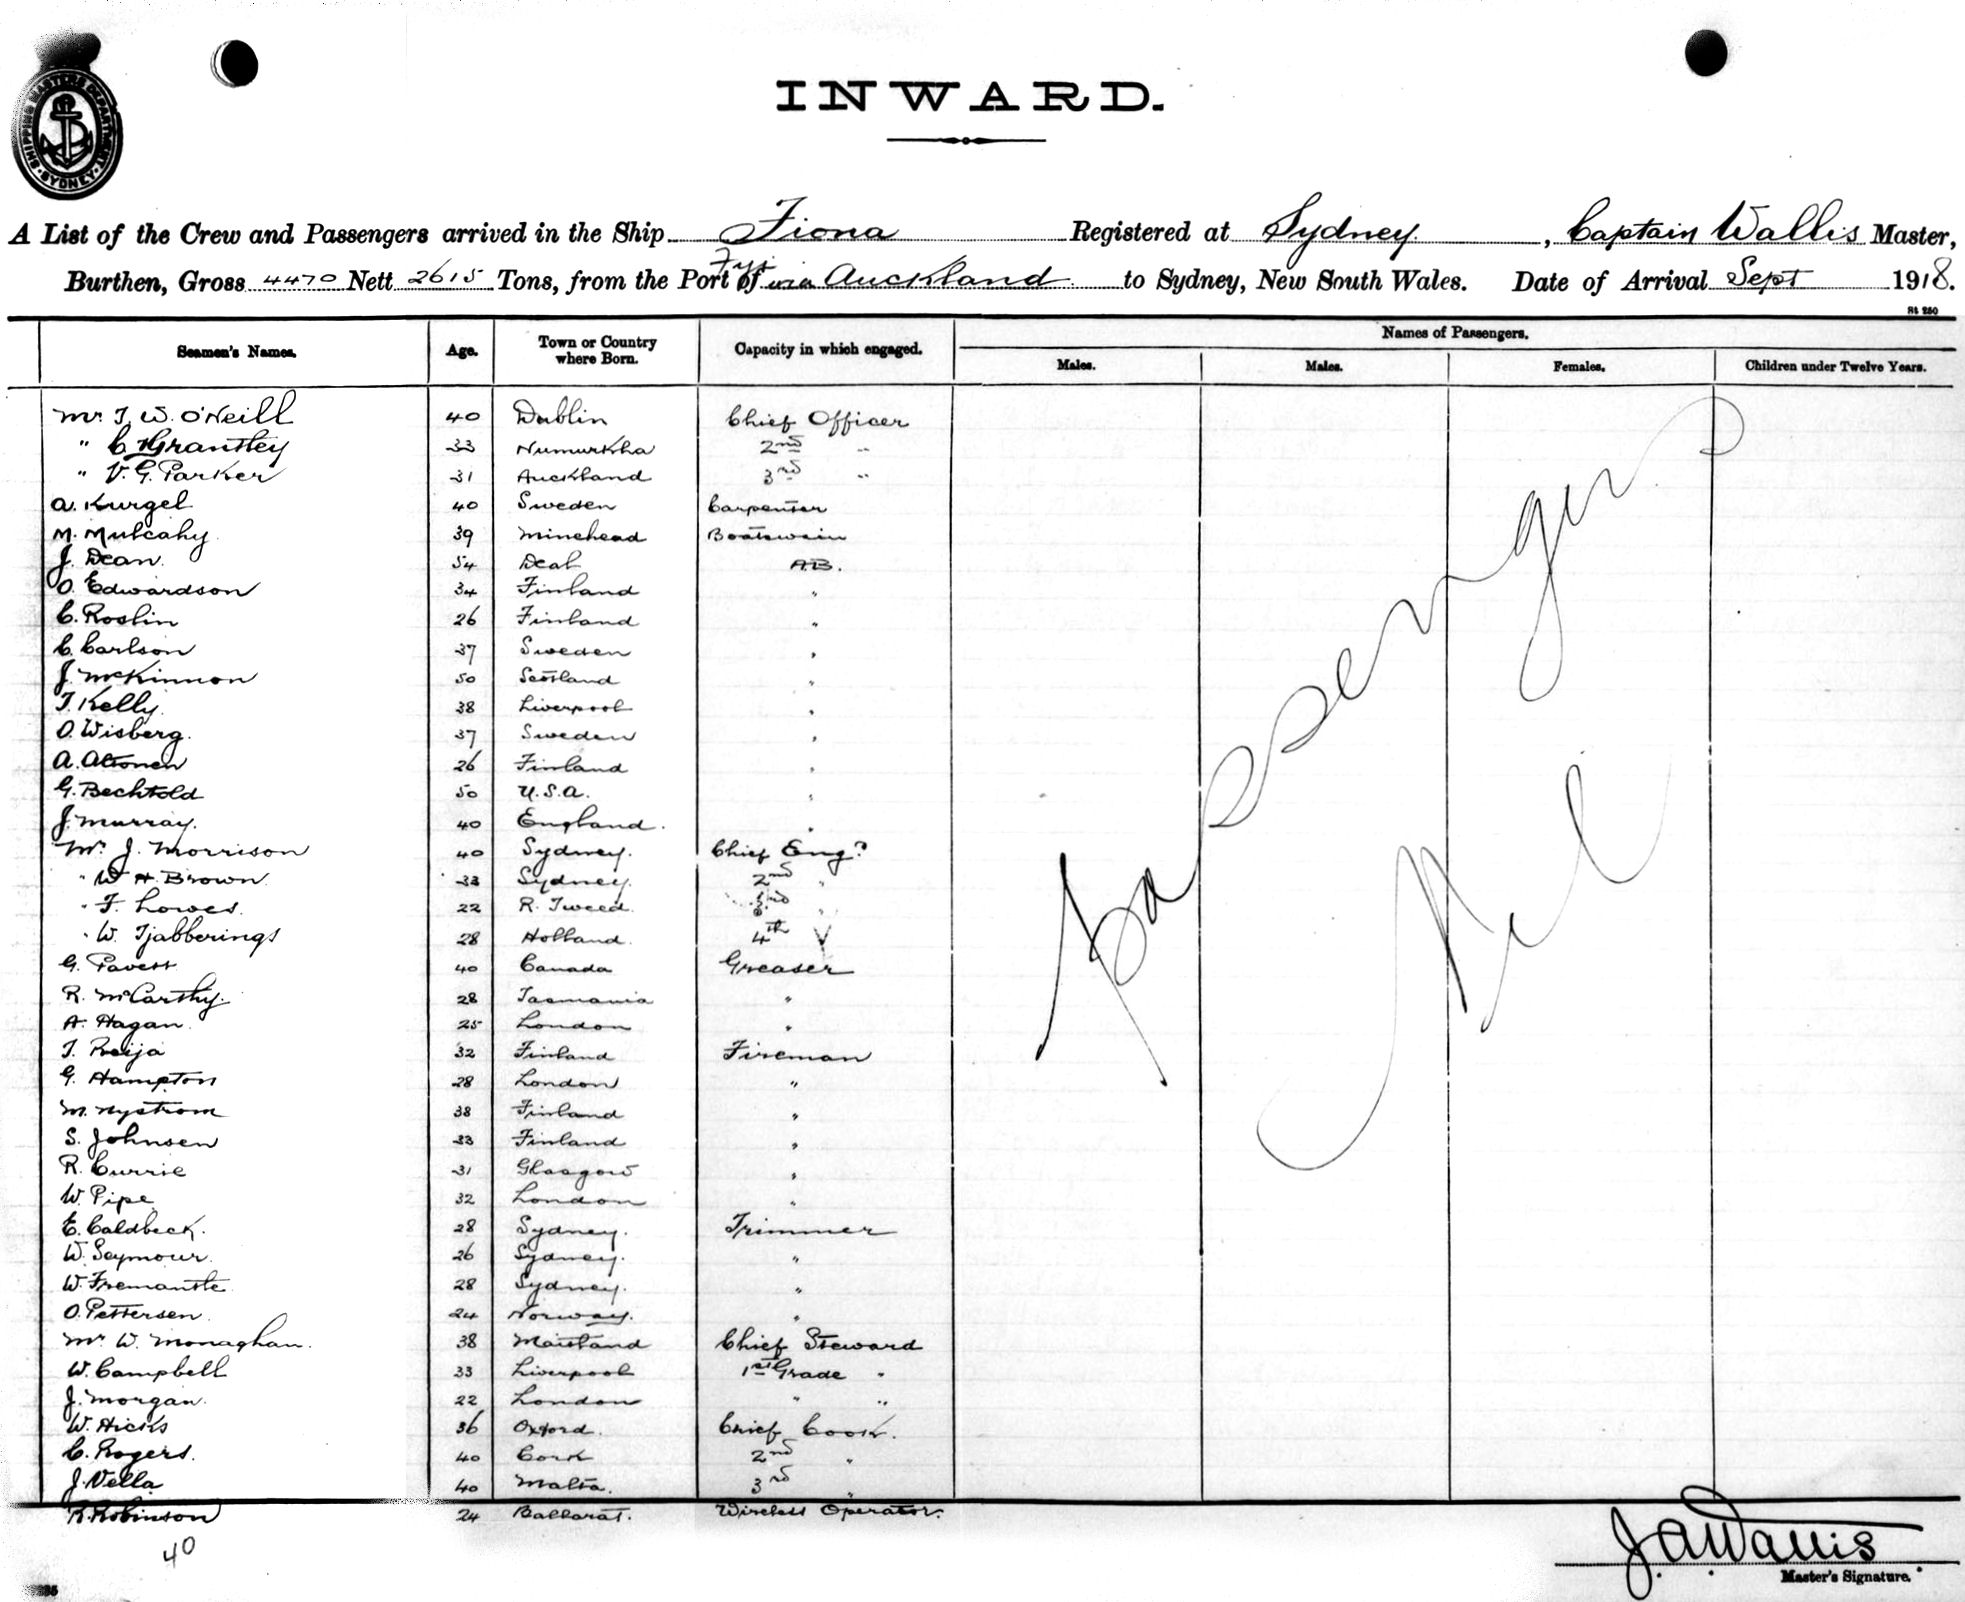 SHIPPING MASTERS DEPARTMENT SYDNEY
INWARD.
A List of the Crew and Passengers arrived in the Ship Fiona Registered at Sydney, Captain Wallis Master,
Burthen, Gross 4470 Nett 2615 Tons, from the Port of Fiji via Auckland to Sydney, New South Wales. Date of Arrival Sept 1918.
St 250
Seamen's Names. Age. Town or Country where Born. Capacity in which engaged. Names of Passengers.
Males. Males. Females. Children under Twelve Years.
Mr. T. W. O'Neill 40 Dublin Chief Officer
" C. Grantley 33 Numurkha 2nd "
" V. G. Parker 31 Auckland 3rd "
A. Kurgel 40 Sweden Carpenter
M. Mulcahy 39 Minehead Boatswain
J. Dean. 54 Deal A.B.
O. Edwardson 34 Finland "
C. Roslin 26 Finland "
C. Carlson 37 Sweden "
J. McKinnon 50 Scotland "
T. Kelly. 38 Liverpool "
O. Wisberg. 37 Sweden "
A. Altonen 26 Finland "
G. Bechtold 50 U.S.A. "
J. Murray. 40 England. "
Mr. J. Morrison 40 Sydney. Chief Engr
" W H Brown 33 Sydney. 2nd "
" F. Lowes. 22 R. Tweed. 3rd "
" W. Tjabberings 28 Holland. 4th "
G. Pavett 40 Canada Greaser
R. McCarthy. 28 Tasmania "
A. Hagan. 25 London "
T. Reija 32 Finland Fireman
G. Hampton 28 London "
M. Nystrom 38 Finland "
S. Johnsen 33 Finland "
R. Currie 31 Glasgow "
W. Pipe 32 London "
E. Caldbeck. 28 Sydney. Trimmer
W. Seymour. 26 Sydney. "
W. Fremantle 28 Sydney. "
O. Pettersen. 24 Norway. "
Mr. W. Monaghan. 38 Maitland Chief Steward
W. Campbell 33 Liverpool 1st Grade "
J. Morgan. 22 London " "
W. Hicks 36 Oxford. Chief Cook.
C. Rogers. 40 Cork 2nd "
J. Vella 40 Malta. 3rd "
R. Robinson 24 Ballarat. Wireless Operator.
Passengers
Nil
40
J. A. Wallis
Master's Signature.